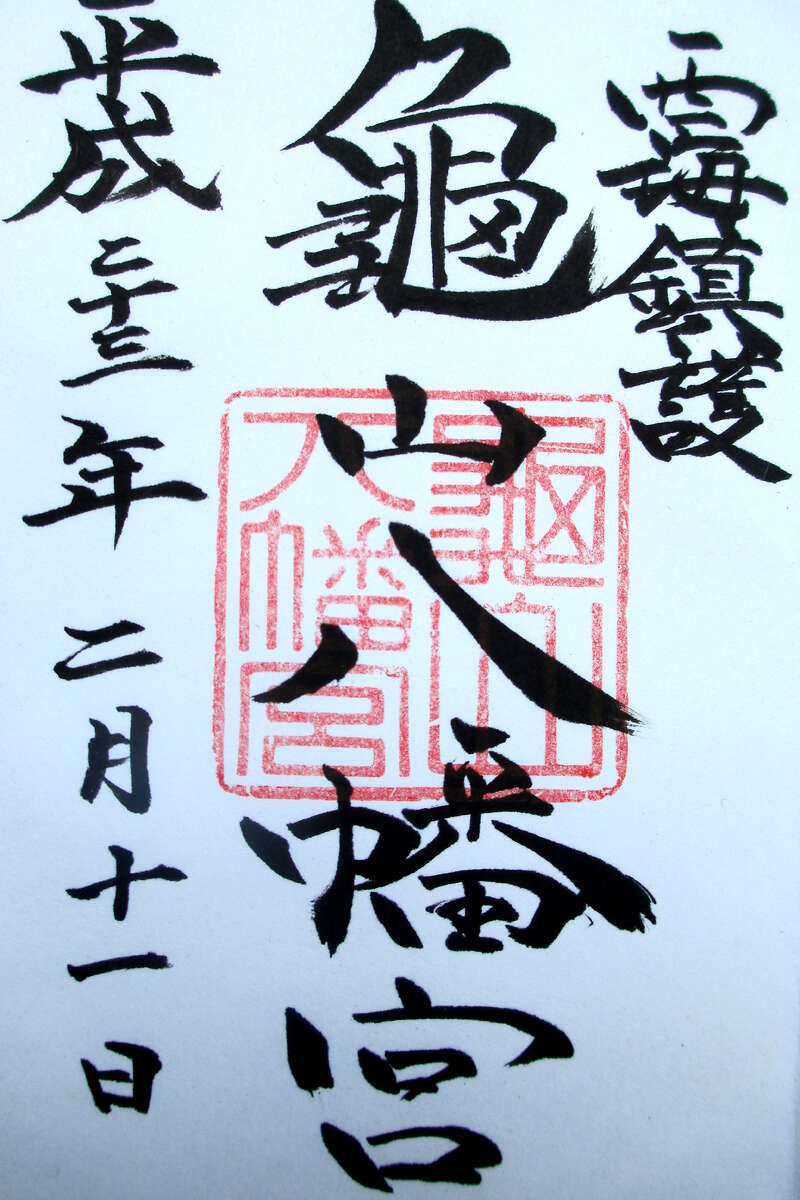 西海鎮護
龜山八幡宮
平成二十三年 二月十一日
龜山
八幡宮